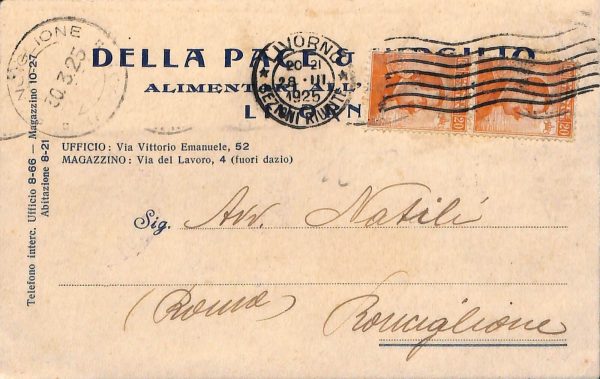 DELLA PAC & VIRGILIO
ALIMENTARI ALL'
LIVORNO
LIVORNO
20-21
28 III
1925
RONCIGLIONE
30.3.25
20
20
UFFICIO: Via Vittorio Emanuele, 52
MAGAZZINO: Via del Lavoro, 4 (fuori dazio)
Telefono interc. Ufficio 8-66 — Magazzino 10-27
Abitazione 8-21
Sig. Avv. Natili
(Roma) Ronciglione